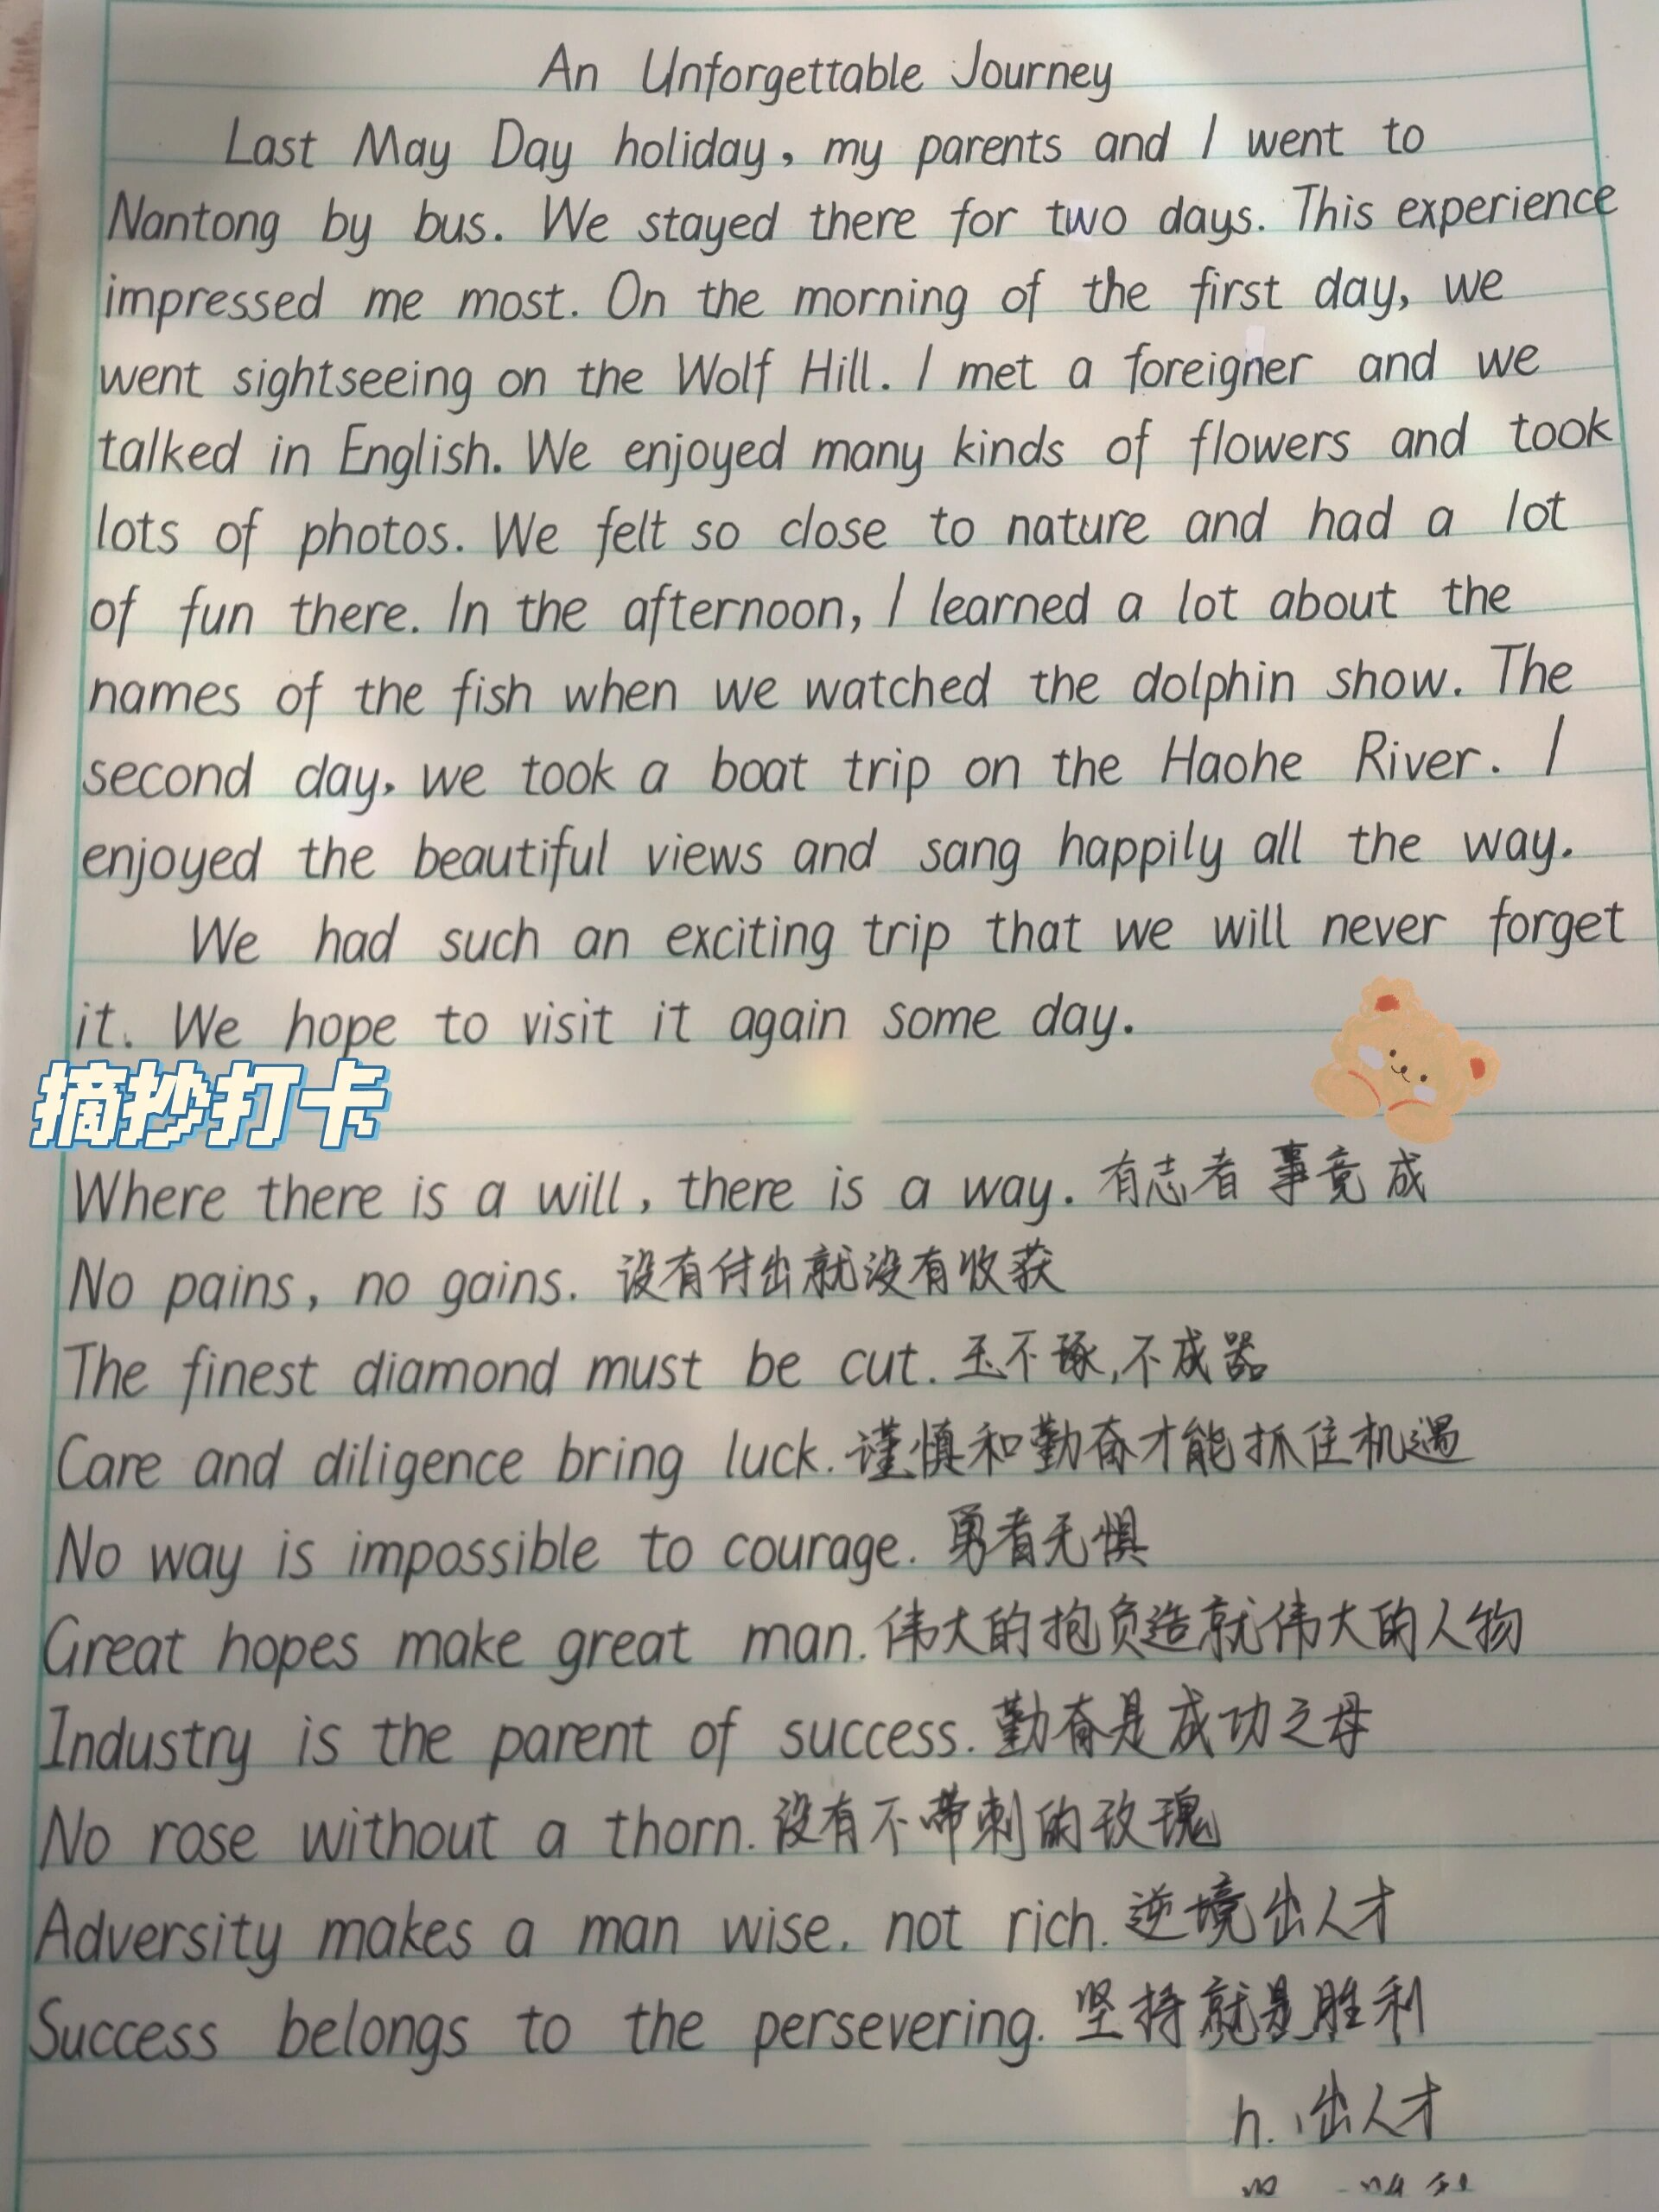 An Unforgettable Journey
Last May Day holiday, my parents and I went to
Nantong by bus. We stayed there for two days. This experience
impressed me most. On the morning of the first day, we
went sightseeing on the Wolf Hill. I met a foreigner and we
talked in English. We enjoyed many kinds of flowers and took
lots of photos. We felt so close to nature and had a lot
of fun there. In the afternoon, I learned a lot about the
names of the fish when we watched the dolphin show. The
second day, we took a boat trip on the Haohe River. I
enjoyed the beautiful views and sang happily all the way.
We had such an exciting trip that we will never forget
it. We hope to visit it again some day.
摘抄打卡
Where there is a will, there is a way. 有志者事竟成
No pains, no gains. 没有付出就没有收获
The finest diamond must be cut. 玉不琢,不成器
Care and diligence bring luck. 谨慎和勤奋才能抓住机遇
No way is impossible to courage. 勇者无惧
Great hopes make great man. 伟大的抱负造就伟大的人物
Industry is the parent of success. 勤奋是成功之母
No rose without a thorn. 没有不带刺的玫瑰
Adversity makes a man wise. not rich. 逆境出人才
Success belongs to the persevering. 坚持就是胜利
h. 出人才